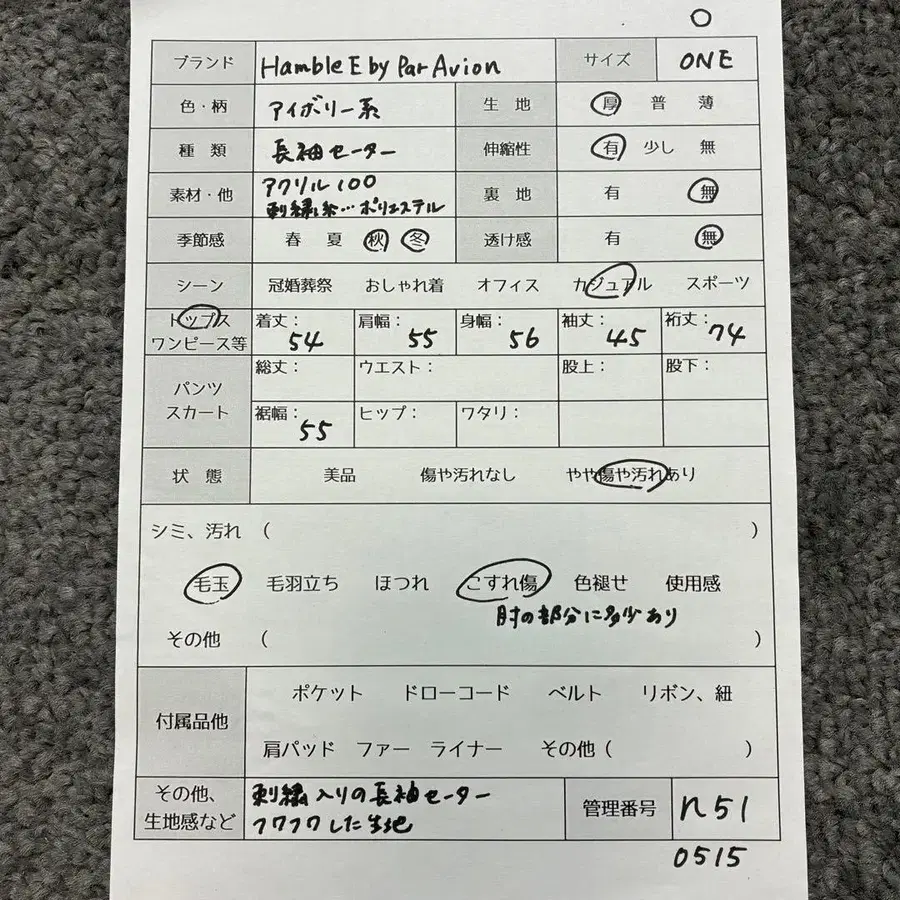 ○
ブランド HambleE by Par Avion サイズ ONE
色・柄 アイボリー系 生 地 厚 普 薄
種 類 長袖セーター 伸縮性 有 少し 無
素材・他 アクリル100 裏 地 有 無
刺繍糸…ポリエステル
季節感 春 夏 秋 冬 透け感 有 無
シーン 冠婚葬祭 おしゃれ着 オフィス カジュアル スポーツ
トップス 着丈: 54 肩幅: 55 身幅: 56 袖丈: 45 裄丈: 74
ワンピース等
パンツ 総丈: ウエスト: 股上: 股下:
スカート 裾幅: 55 ヒップ: ワタリ:
状 態 美品 傷や汚れなし やや傷や汚れあり
シミ、汚れ ( )
毛玉 毛羽立ち ほつれ こすれ傷 色褪せ 使用感
肘の部分に多少あり
その他 ( )
付属品他 ポケット ドローコード ベルト リボン、紐
肩パッド ファー ライナー その他 ( )
その他、 刺繍入りの長袖セーター 管理番号 n51
生地感など フワフワした生地
0515